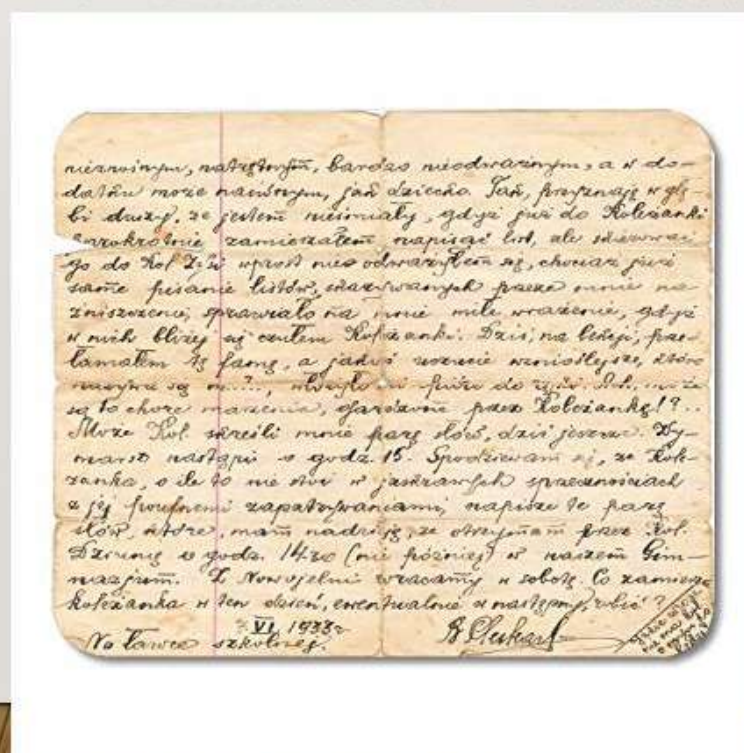 niezwinnym, natrętnym, bardzo nieodważnym, a w do-
datku może naiwnym, jak dziecko. Tak, przyznaję w głę-
bi duszy, że jestem nieśmiały, gdyż już do Koleżanki
szarokrotnie zamierzałem napisać list, ale skierować
go do Kol. wprost nie odważyłem się, chociaż już
same pisanie listów, skazywanych przeze mnie na
zniszczenie, sprawiało na mnie miłe wrażenie, gdyż
w nich bliżej się czułem Koleżanki. Dziś, na lekcji, prze-
łamałem tę famę, a jakieś uczucie wznioślejsze, które
nazywa się m...?.., włożyło mi pióro do ręki. Ach, może
są to chore marzenia, gardzone przez Koleżankę!?..
Może Kol. skreśli mnie parę słów, dziś jeszcze. Wy-
marsz nastąpi o godz. 15. Spodziewam się, że Kole-
żanka, o ile to nie stoi w jaskrawych sprzecznościach
z jej poufnemi zapatrywaniami, napisze te parę
słów, które, mam nadzieję, że otrzymam przez Kol.
o godz. 14.30 (nie później) w naszem Gim-
nazjum. Z Nowojelni wracamy w sobotę. Co zamierza
koleżanka w ten dzień, ewentualnie w następny, robić?
VI. 1933 r.
Na ławce szkolnej.